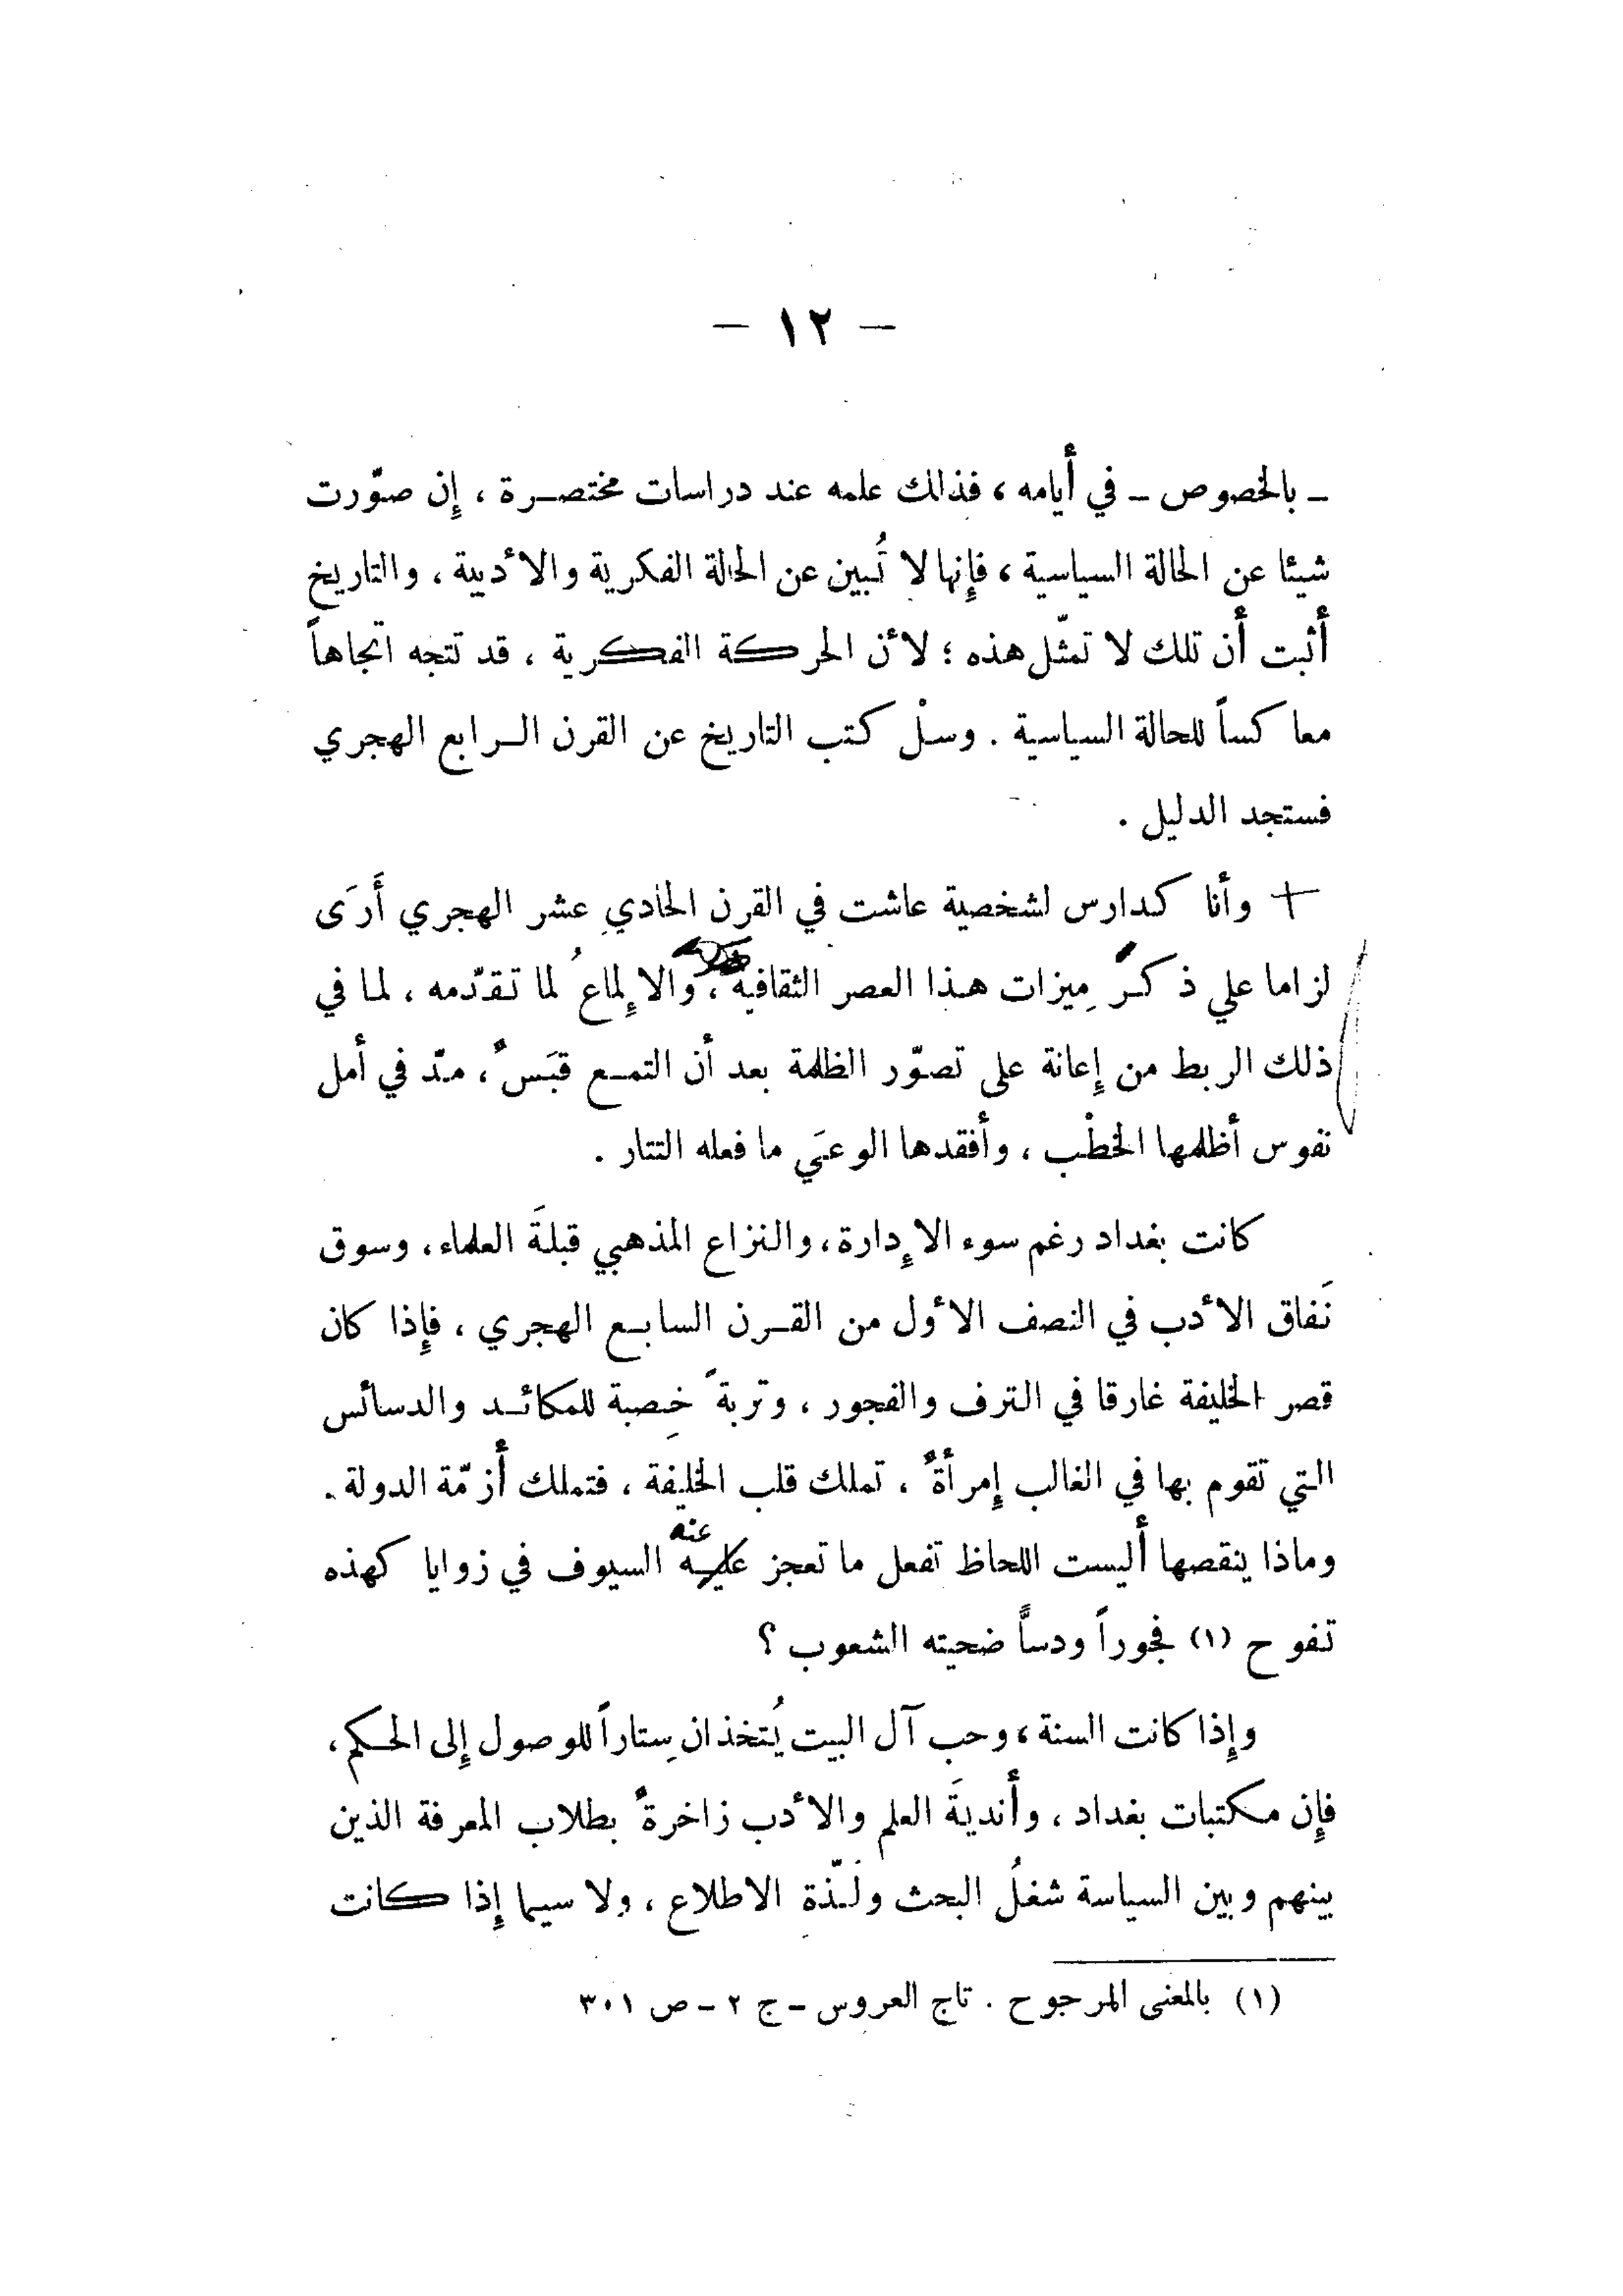 — ١٢ —
ـ بالخصوص ـ في أيامه ، فذلك علمه عند دراسات مختصرة ، إِن صوّرت
شيئا عن الحالة السياسية ، فإِنها لا تُبين عن الحالة الفكرية والأدبية ، والتاريخ
أثبت أن تلك لا تمثّل هذه ؛ لأن الحركة الفكرية ، قد تتجه اتجاهاً
معاكساً للحالة السياسية . وسلْ كتب التاريخ عن القرن الرابع الهجري
فستجد الدليل .
+ وأنا كدارس لشخصية عاشت في القرن الحادي عشر الهجري أَرَى
لزاما علي ذكرَ مِيزات هذا العصر الثقافية ، والإِلماعُ لما تقدّمه ، لما في
ذلك الربط من إِعانة على تصوّر الظلمة بعد أن التمع قبَسٌ ، مدّ في أمل
نفوس أظلمها الخطْب ، وأفقدها الوعيَ ما فعله التتار .
كانت بغداد رغم سوء الإِدارة ، والنزاع المذهبي قبلةَ العلماء ، وسوق
نَفاق الأدب في النصف الأول من القرن السابع الهجري ، فإِذا كان
قصر الخليفة غارقا في الترف والفجور ، وتربةً خِصبة للمكائد والدسائس
التي تقوم بها في الغالب إِمرأةٌ ، تملك قلب الخليفة ، فتملك أزمّة الدولة .
عنه
وماذا ينقصها أليست اللحاظ تفعل ما تعجز عليه السيوف في زوايا كهذه
تفوح (١) فجوراً ودساً ضحيته الشعوب ؟
وإِذا كانت السنة ، وحب آل البيت يُتخذان سِتاراً للوصول إِلى الحكم ،
فإِن مكتبات بغداد ، وأنديةَ العلم والأدب زاخرةٌ بطلاب المعرفة الذين
بينهم وبين السياسة شغلُ البحث ولَذّة الاطلاع ، ولا سيما إِذا كانت
(١) بالمعنى المرجوح . تاج العروس ـ ج ٢ ـ ص ٣٠١